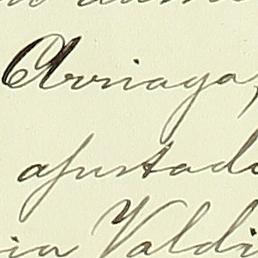 Arriaga,
ajustado
ia Valdi